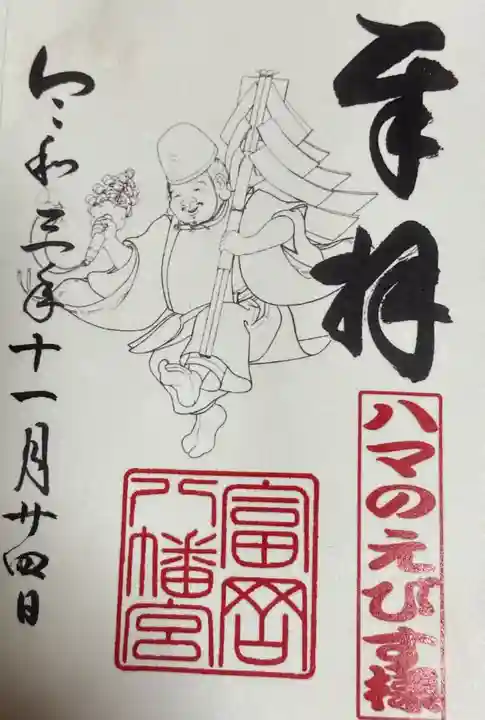 奉拝
ハマのえびす様
富岡
八幡宮
令和三年十一月廿四日